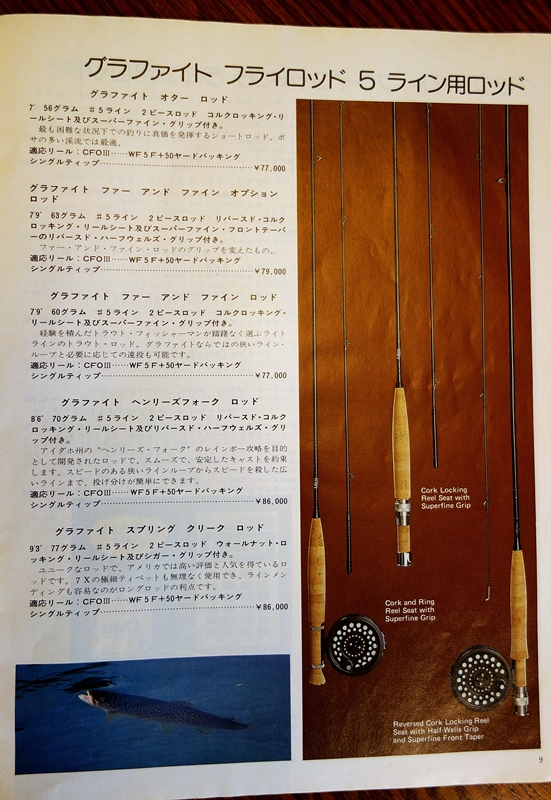 グラファイト フライロッド 5 ライン用ロッド
グラファイト オター ロッド
7' 56グラム ♯5ライン 2ピースロッド コルクロッキング・リ
ールシート及びスーパーファイン・グリップ付き。
最も困難な状況下での釣りに真価を発揮するショートロッド。ボ
サの多い渓流では最適。
適応リール：CFOⅢ……WF5F+50ヤードバッキング
シングルティップ……………………………………¥77,000
グラファイト ファー アンド ファイン オプション
ロッド
7'9" 63グラム ♯5ライン 2ピースロッド リバースド・コルク
ロッキング・リールシート及びスーパーファイン・フロントテーパ
ーのリバースド・ハーフウェルズ・グリップ付き。
ファー・アンド・ファイン・ロッドのグリップを変えたもの。
適応リール：CFOⅢ……WF5F+50ヤードバッキング
シングルティップ……………………………………¥79,000
グラファイト ファー アンド ファイン ロッド
7'9" 60グラム ♯5ライン 2ピースロッド コルクロッキング・
リールシート及びスーパーファイン・グリップ付き。
経験を積んだトラウト・フィッシャーマンが躊躇なく選ぶライト
ラインのトラウト・ロッド。グラファイトならではの狭いライン・
ループと必要に応じての遠投も可能です。
適応リール：CFOⅢ……WF5F+50ヤードバッキング
シングルティップ……………………………………¥77,000
グラファイト ヘンリーズフォーク ロッド
8'6" 70グラム ♯5ライン 2ピースロッド リバースド・コルク
ロッキング・リールシート及びリバースド・ハーフウェルズ・グリ
ップ付き。
アイダホ州の"ヘンリーズ・フォーク"のレインボー攻略を目的
として開発されたロッドで、スムーズで、安定したキャストを約束
します。スピードのある狭いラインループからスピードを殺した広
いラインまで、投げ分けが簡単にできます。
適応リール：CFOⅢ……WF5F+50ヤードバッキング
シングルティップ……………………………………¥86,000
グラファイト スプリング クリーク ロッド
9'3" 77グラム ♯5ライン 2ピースロッド ウォールナット・ロ
ッキング・リールシート及びシガー・グリップ付き。
ユニークなロッドで、アメリカでは高い評価と人気を得ているロ
ッドです。7Xの極細ティペットも無理なく使用でき、ラインメン
ディングも容易なのがロングロッドの利点です。
適応リール：CFOⅢ……WF5F+50ヤードバッキング
シングルティップ……………………………………¥86,000
Cork Locking
Reel Seat with
Superfine Grip
Cork and Ring
Reel Seat with
Superfine Grip
Reversed Cork Locking Reel
Seat with Half-Wells Grip
and Superfine Front Taper
9